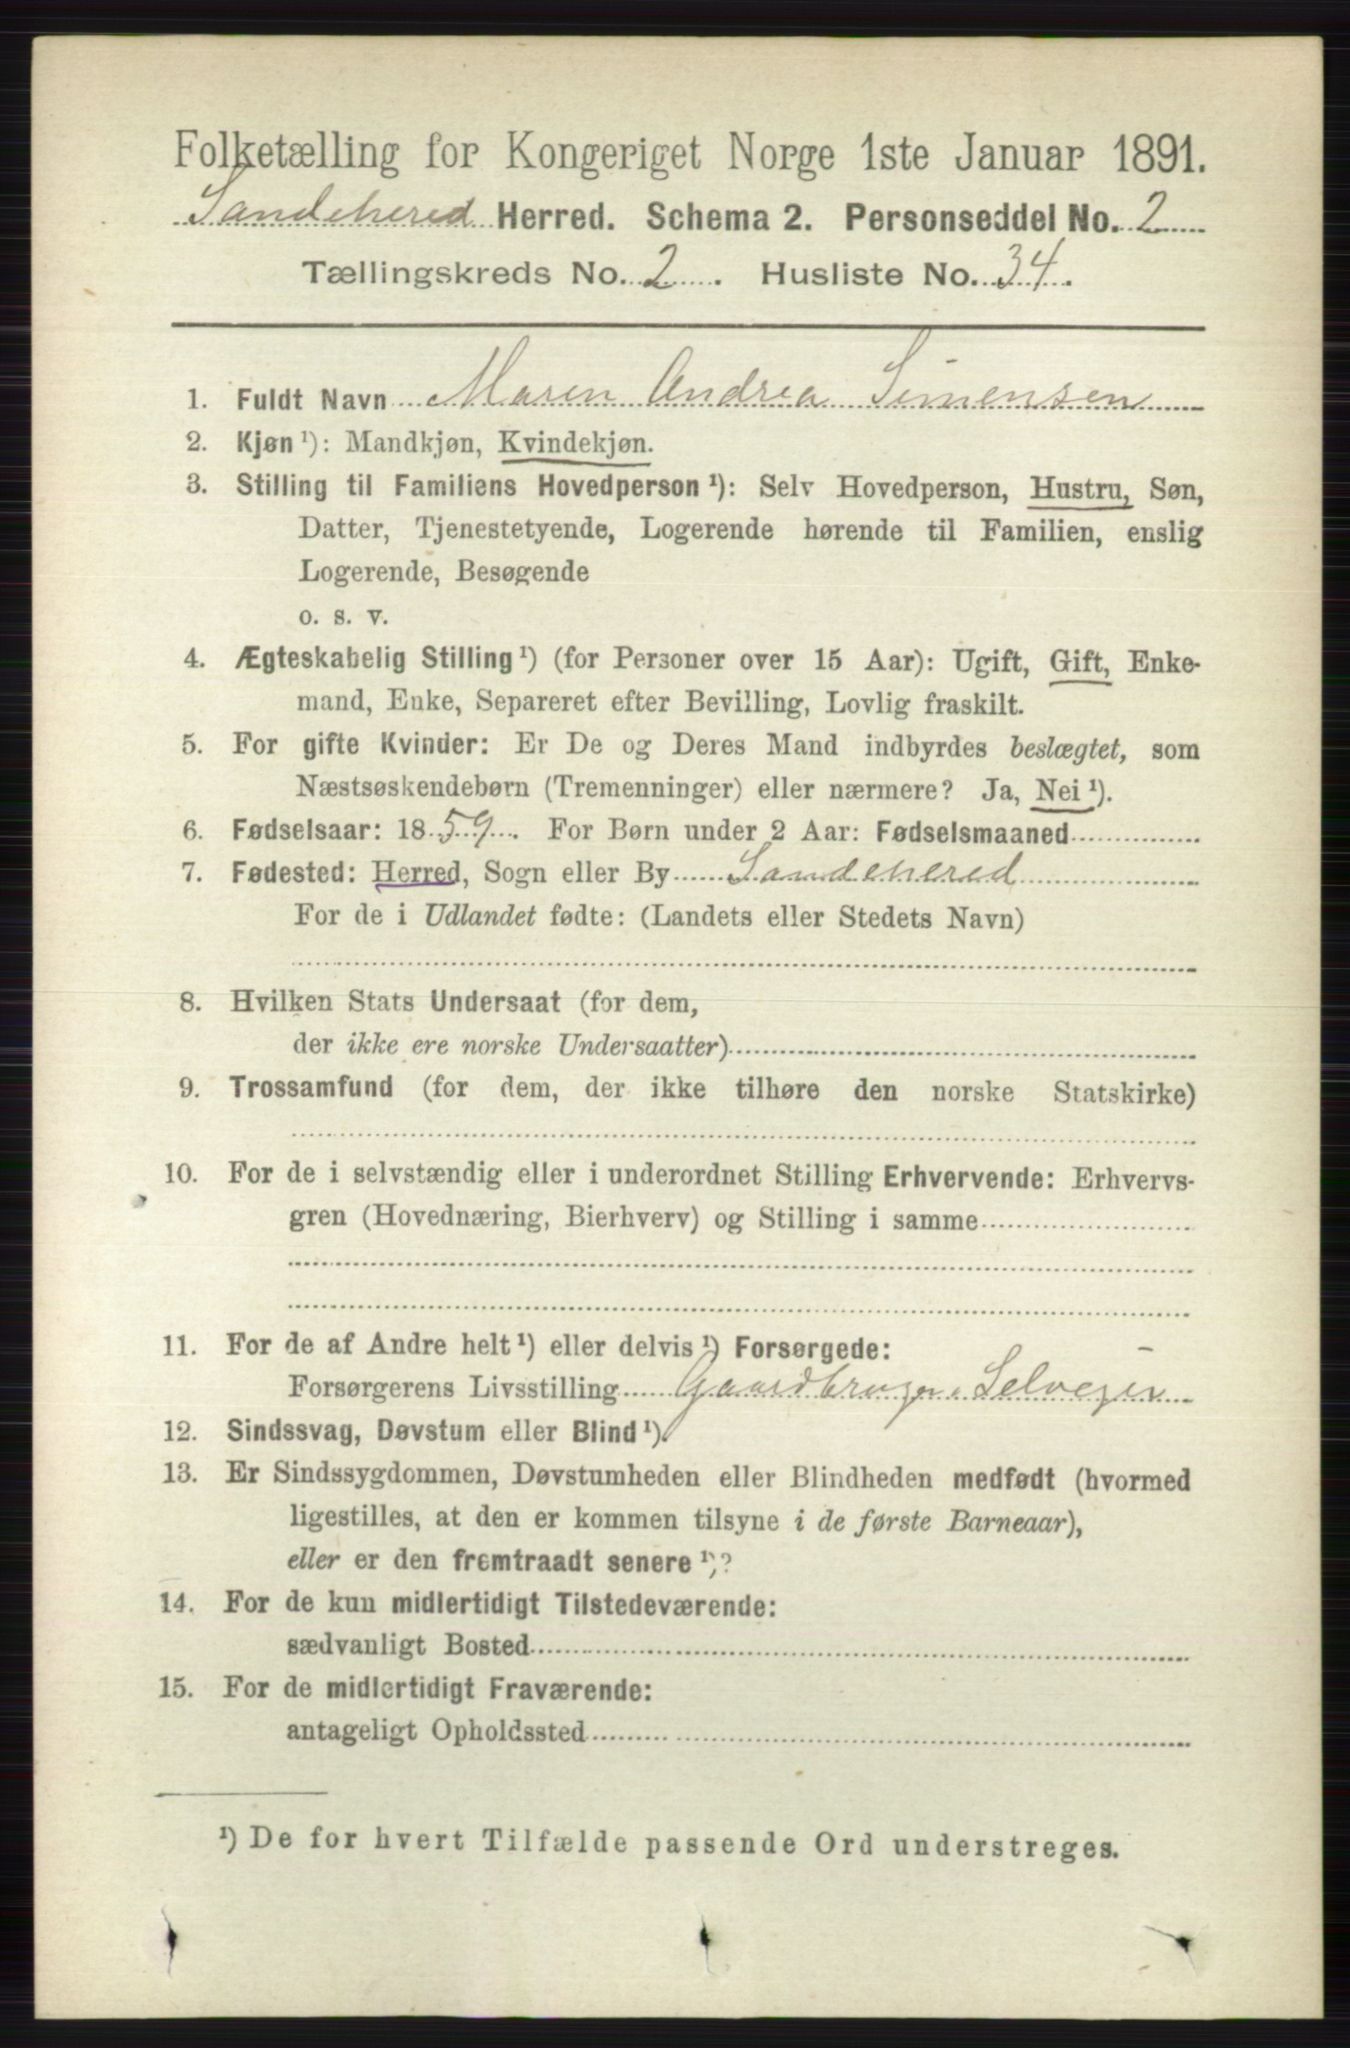 Folketælling for Kongeriget Norge 1ste Januar 1891.
Sandehered Herred. Schema 2. Personseddel No. 2
Tællingskreds No. 2. Husliste No. 34.
1. Fuldt Navn Maren Andrea Simensen
2. Kjøn ¹): Mandkjøn, Kvindekjøn.
3. Stilling til Familiens Hovedperson ¹): Selv Hovedperson, Hustru, Søn,
Datter, Tjenestetyende, Logerende hørende til Familien, enslig
Logerende, Besøgende
o. s. v.
4. Ægteskabelig Stilling ¹) (for Personer over 15 Aar): Ugift, Gift, Enke-
mand, Enke, Separeret efter Bevilling, Lovlig fraskilt.
5. For gifte Kvinder: Er De og Deres Mand indbyrdes beslægtet, som
Næstsøskendebørn (Tremenninger) eller nærmere? Ja, Nei ¹).
6. Fødselsaar: 1859. For Børn under 2 Aar: Fødselsmaaned
7. Fødested: Herred, Sogn eller By Sandehered
For de i Udlandet fødte: (Landets eller Stedets Navn)
8. Hvilken Stats Undersaat (for dem,
der ikke ere norske Undersaatter)
9. Trossamfund (for dem, der ikke tilhøre den norske Statskirke)
10. For de i selvstændig eller i underordnet Stilling Erhvervende: Erhvervs-
gren (Hovednæring, Bierhverv) og Stilling i samme
11. For de af Andre helt ¹) eller delvis ¹) Forsørgede:
Forsørgerens Livsstilling Gaardbruger Selveier
12. Sindssvag, Døvstum eller Blind ¹).
13. Er Sindssygdommen, Døvstumheden eller Blindheden medfødt (hvormed
ligestilles, at den er kommen tilsyne i de første Barneaar),
eller er den fremtraadt senere ¹)?
14. For de kun midlertidigt Tilstedeværende:
sædvanligt Bosted
15. For de midlertidigt Fraværende:
antageligt Opholdssted
¹) De for hvert Tilfælde passende Ord understreges.